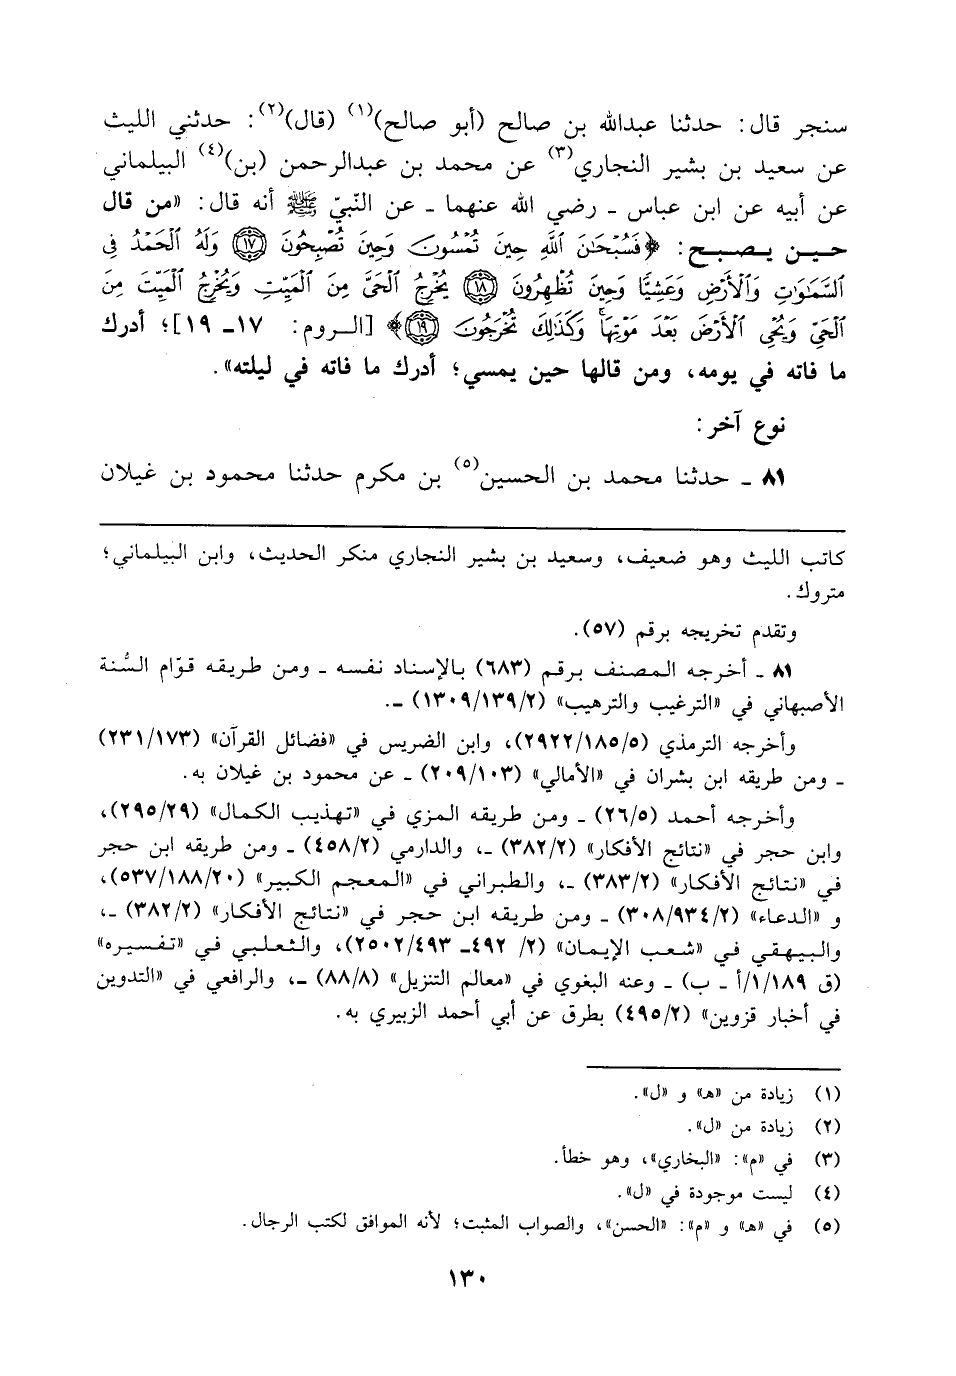 سنجر قال: حدثنا عبدالله بن صالح (أبو صالح)(١) (قال)(٢): حدثني الليث
عن سعيد بن بشير النجاري(٣) عن محمد بن عبدالرحمن (بن)(٤) البيلماني
عن أبيه عن ابن عباس ـ رضي الله عنهما ـ عن النّبيّ ﷺ أنه قال: «من قال
حين يصبح: ﴿فَسُبْحَانَ ٱللَّهِ حِينَ تُمْسُونَ وَحِينَ تُصْبِحُونَ ١٧ وَلَهُ ٱلْحَمْدُ فِى
ٱلسَّمَٰوَٰتِ وَٱلْأَرْضِ وَعَشِيًّا وَحِينَ تُظْهِرُونَ ١٨ يُخْرِجُ ٱلْحَىَّ مِنَ ٱلْمَيِّتِ وَيُخْرِجُ ٱلْمَيِّتَ مِنَ
ٱلْحَىِّ وَيُحْىِ ٱلْأَرْضَ بَعْدَ مَوْتِهَا وَكَذَٰلِكَ تُخْرَجُونَ ١٩﴾ [الروم: ١٧ـ ١٩]؛ أدرك
ما فاته في يومه، ومن قالها حين يمسي؛ أدرك ما فاته في ليلته».
نوع آخر:
٨١ ـ حدثنا محمد بن الحسين(٥) بن مكرم حدثنا محمود بن غيلان
كاتب الليث وهو ضعيف، وسعيد بن بشير النجاري منكر الحديث، وابن البيلماني؛
متروك.
وتقدم تخريجه برقم (٥٧).
٨١ ـ أخرجه المصنف برقم (٦٨٣) بالإسناد نفسه ـ ومن طريقه قوّام السُّنة
الأصبهاني في «الترغيب والترهيب» (١٣٠٩/١٣٩/٢) ـ.
وأخرجه الترمذي (٢٩٢٢/١٨٥/٥)، وابن الضريس في «فضائل القرآن» (٢٣١/١٧٣)
ـ ومن طريقه ابن بشران في «الأمالي» (٢٠٩/١٠٣) ـ عن محمود بن غيلان به.
وأخرجه أحمد (٢٦/٥) ـ ومن طريقه المزي في «تهذيب الكمال» (٢٩٥/٢٩)،
وابن حجر في «نتائج الأفكار» (٣٨٢/٢) ـ، والدارمي (٤٥٨/٢) ـ ومن طريقه ابن حجر
في «نتائج الأفكار» (٣٨٣/٢) ـ، والطبراني في «المعجم الكبير» (٥٣٧/١٨٨/٢٠)،
و «الدعاء» (٣٠٨/٩٣٤/٢) ـ ومن طريقه ابن حجر في «نتائج الأفكار» (٣٨٢/٢) ـ،
والبيهقي في «شعب الإيمان» (٢/ ٤٩٢ـ ٢٥٠٢/٤٩٣)، والثعلبي في «تفسيره»
(ق ١/١٨٩/أ ـ ب) ـ وعنه البغوي في «معالم التنزيل» (٨٨/٨) ـ، والرافعي في «التدوين
في أخبار قزوين» (٤٩٥/٢) بطرق عن أبي أحمد الزبيري به.
(١) زيادة من «هـ» و «ل».
(٢) زيادة من «ل».
(٣) في «م»: «البخاري»، وهو خطأ.
(٤) ليست موجودة في «ل».
(٥) في «هـ» و «م»: «الحسن»، والصواب المثبت؛ لأنه الموافق لكتب الرجال.
١٣٠